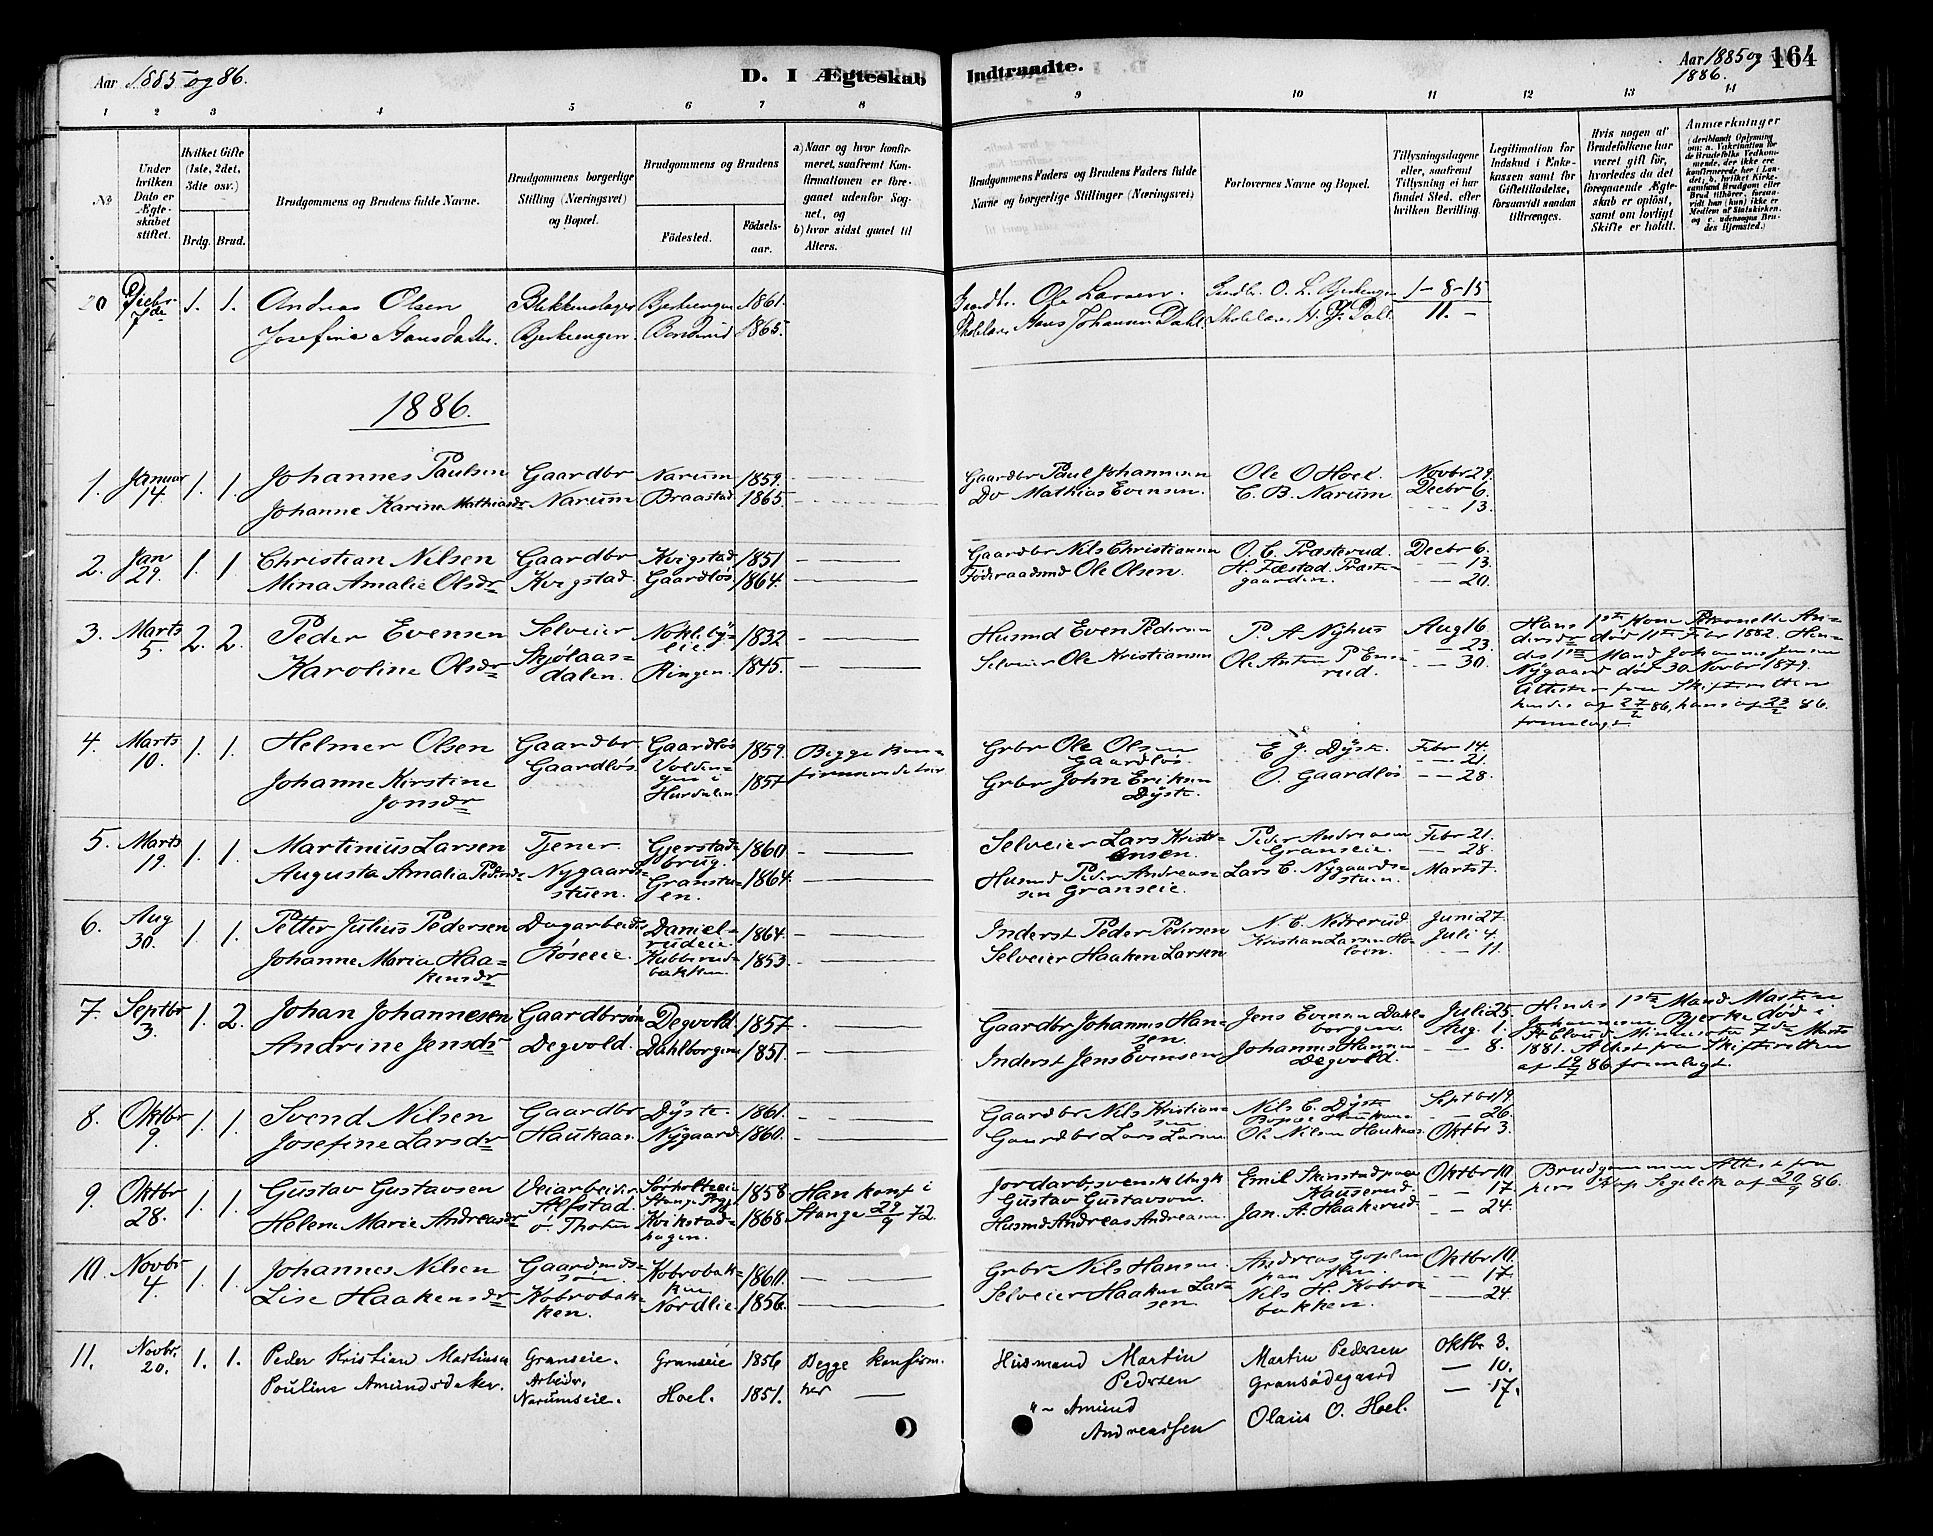 Aar 1885 og 86.
D. I Ægteskab Indtraadte.
Aar 1885 og 1886.
164
1 2 3 4 5 6 7 8 9 10 11 12 13 14
No
Under hvilken Dato er Ægteskabet stiftet.
Hvilket Gifte (1ste, 2det, 3die osv.)
Brdg. Brud.
Brudgommens og Brudens fulde Navne.
Brudgommens borgerlige Stilling (Næringsvei) og Bopæl.
Brudgommens og Brudens
Födested.
Födselsaar.
a) Naar og hvor konfirmeret, saafremt Konfirmationen er foregaaet udenfor Sognet, og
b) hvor sidst gaaet til Alters.
Brudgommens Faders og Brudens Faders fulde Navne og borgerlige Stillinger (Næringsvei)
Forlovernes Navne og Bopæl.
Tillysningsdagene eller, saafremt Tillysning ei har fundet Sted, efter hvilken Bevilling.
Legitimation for Indskud i Enkekassen samt for Giftetilladelse, forsaavidt saadan tiltrænges.
Hvis nogen af Brudefolkene har været gift för, hvorledes da det foregaaende Ægteskab er oplöst, samt om lovligt Skifte er holdt.
Anmærkninger
20 Decbr 1. 1. Andreas Olsen Blikkenslager 1861. Ole Larsen 1-8-15
Josefine Hansdatter. Bjerkeengen. 1865. Hans Johannsen Dahl. 11. -
1886.
1. Januar 14. 1. 1. Johannes Paulsen Gaardbr Narum 1859. Gaardbr Paul Johannesen Ole O Hoel. Novbr 29.
Johanne Karine Mathiasdr Narum Braastad 1865 Do Mathias Evensen. C. B. Narum. Decbr 6.
13.
2. Jan 29. 1. 1 Christian Nilsen Gaardbr Kvigstad 1851 Gaardbr Nils Christiansen O. C. Præsterud. Decbr 6.
Mina Amalie Olsdr Kvigstad. Gaardløs 1864. Föderaadsmd Ole Olsen. H. Fæstad. Præstegaarden. 13
20.
3. Marts 5. 2. 2. Peder Evensen Selveier Noklebyeie 1832 Husmd Even Pedersen P. A Nyhus Aug 16
Karoline Olsdr Skjölaasdalen. Ringen. 1845. Selveier Ole Kristiansen Ole Anton P Enserud. 23.
30.
Hans 1ste Kone Petronelle Andersdr död 11te Febr 1882. Hendes 1ste Mand Johannes Jensen Nygaard död 30 Novbr 1879. Attester fra Skifteretten hendes af 27/2 86, hans af 23/2 86. fremlagt.
4. Marts 10. 1. 1. Helmer Olsen Gaardbr Gaardløs 1859. Begge konfirmerede her Grbr Ole Olsen Gaardløs. E J. Dÿste. Febr 14.
Johanne Kirstine Jonsdr Gaardløs. Voldengen i Hurdalen 1857 Grbr John Eriksen Dÿste. O. Gaardløs 21.
28.
5. Marts 19. 1. 1. Martinius Larsen Tjener Gjerstadbrug. 1860 Selveier Lars Kristiansen. Peder Andreasen Granseie. Febr 21.
28.
Augusta Amalia Pedersdr Nygaardsstuen. Granstuen. 1864. Husmd Peder Andreassen Granseie. Lars C. Nygaardsstuen. Marts 7.
6. Aug 30. 1. 1. Petter Julius Pedersen Dagarbeids Danielrudeie 1864. Inderst Peder Pedersen N. C. Nedrerud. Juni 27.
Johanne Maria Haakensdr Röseeie. Kubberudbakken. 1853. Selveier Haaken Larsen Kristian Larsen Juli 4.
11.
7. Septbr 3. 1. 2. Johan Johannesen Gaardbrsön Degvold. 1857. Gaardbr Johannes Hansen. Jens Evensen Dahlborgen. Juli 25.
Andrine Jensdr Degvold. Dahlborgen 1851. Inderst Jens Evensen Johannes Hansen Degvold. Aug. 1.
8.
Hendes 1ste Mand Martin Johannesen Bjerke död i St Cloud Minnesota 7de Marts 1881. Attest fra Skifteretten af 19/7 86 fremlagt.
8. Oktbr 9. 1. 1. Svend Nilsen Gaardbr Dÿste. 1861. Gaardbr Nils Kristiansen Nils C. Dÿste Septbr 19.
26.
Josefine Larsdr Haukaas. Nÿgaard 1860. Gaardbr Lars Larsen Ole Nilsen Haukaas. Oktbr 3.
9. Oktbr 28. 1. 1. Gustav Gustavsen Veiarbeider 1858 Han konf i Stange 29/9 72. Jordarb. svensk Undgk Gustav Gustavson. Emil Skinstad paa Kauserud. Oktbr 10.
Helene Marie Andreasdr Alfstad ö Thoten Kvikstadhagen. 1868 Husmd Andreas Andreasen Jan. A. Haakerud. 17.
24.
Brudgommens Attest fra 20/9 86.
10. Novbr 4. 1. 1. Johannes Nilsen Gaardmdssön Kobrobakken 1860. Grbr Nils Hansen Andreas Goplen Oktbr 10.
Lise Haakensdr Kobrobakken. Nordlie 1856. Selveier Haaken Larsen Nils H. Kobrobakken. 17.
24.
11. Novbr. 20. 1. 1. Peder Kristian Martinsen Granseie. Granseie 1856 Begge konfirm. her Husmand Martin Pedersen Martin Pedersen Gransödegaard Oktbr 8.
10.
Pouline Amundsdatter. Arbeider, Narumseie. Hoel. 1851. "- Amund Andreassen Olaus O. Hoel. 17.